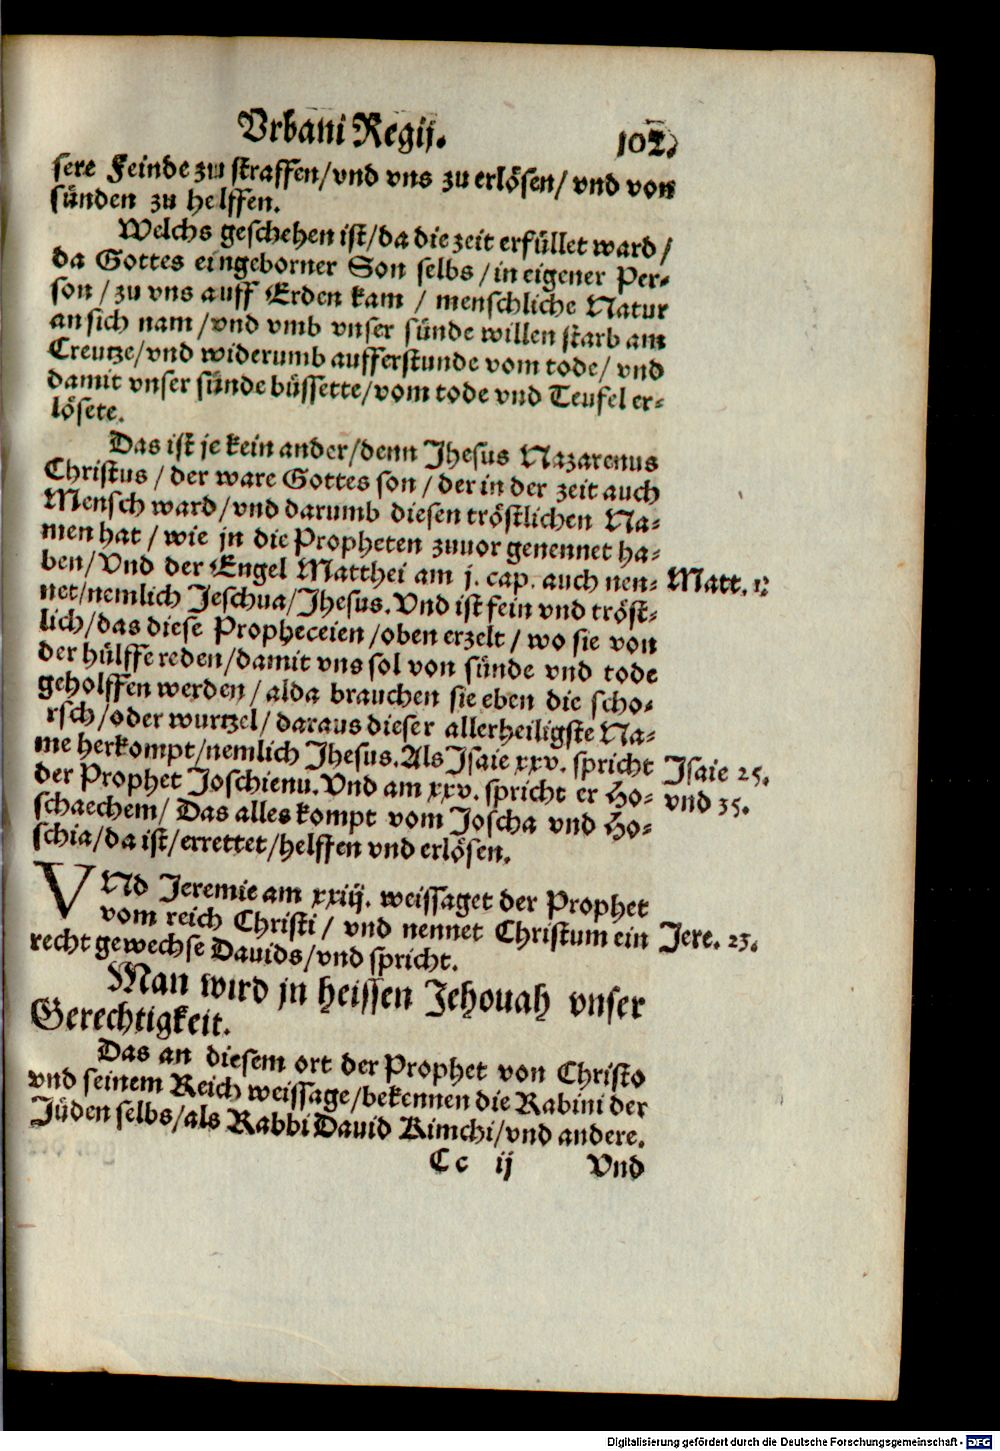 Vrbani Regij. 102.
sere Feinde zu straffen/vnd vns zu erlösen/ vnd von
sünden zu helffen.
Welchs geschehen ist/da die zeit erfüllet ward/
da Gottes eingeborner Son selbs/in eigener Per-
son/zu vns auff Erden kam / menschliche Natur
an sich nam/vnd vmb vnser sünde willen starb am
Creutze/vnd widerumb aufferstunde vom tode/ vnd
damit vnser sünde büssette/vom tode vnd Teufel er-
lösete.
Das ist je kein ander/denn Jhesus Nazarenus
Christus/ der ware Gottes son/der in der zeit auch
Mensch ward/vnd darumb diesen tröstlichen Na-
men hat / wie jn die Propheten zuuor genennet ha-
ben/Vnd der Engel Matthei am j. cap. auch nen- Matt. 1.
net/nemlich Jeschua/Jhesus.Vnd ist fein vnd tröst-
lich/das diese Propheceien/oben erzelt/ wo sie von
der hülffe reden/damit vns sol von sünde vnd tode
geholffen werden/ alda brauchen sie eben die scho-
rsch/oder wurtzel/ daraus dieser allerheiligste Na-
me herkompt/nemlich Jhesus.Als Jsaie xxv. spricht Jsaie 25.
der Prophet Joschienu.Vnd am xxv. spricht er Ho- vnd 35.
schaechem/ Das alles kompt vom Joscha vnd Ho-
schia/da ist/errettet/helffen vnd erlösen.
VNd Jeremie am xxiij. weissaget der Prophet
vom reich Christi/ vnd nennet Christum ein Jere. 23.
recht gewechse Dauids/vnd spricht.
Man wird jn heissen Jehouah vnser
Gerechtigkeit.
Das an diesem ort der Prophet von Christo
vnd seinem Reich weissage/bekennen die Rabini der
Jüden selbs/als Rabbi Dauid Kimchi/vnd andere.
Cc ij Vnd
Digitalisierung gefördert durch die Deutsche Forschungsgemeinschaft - DFG